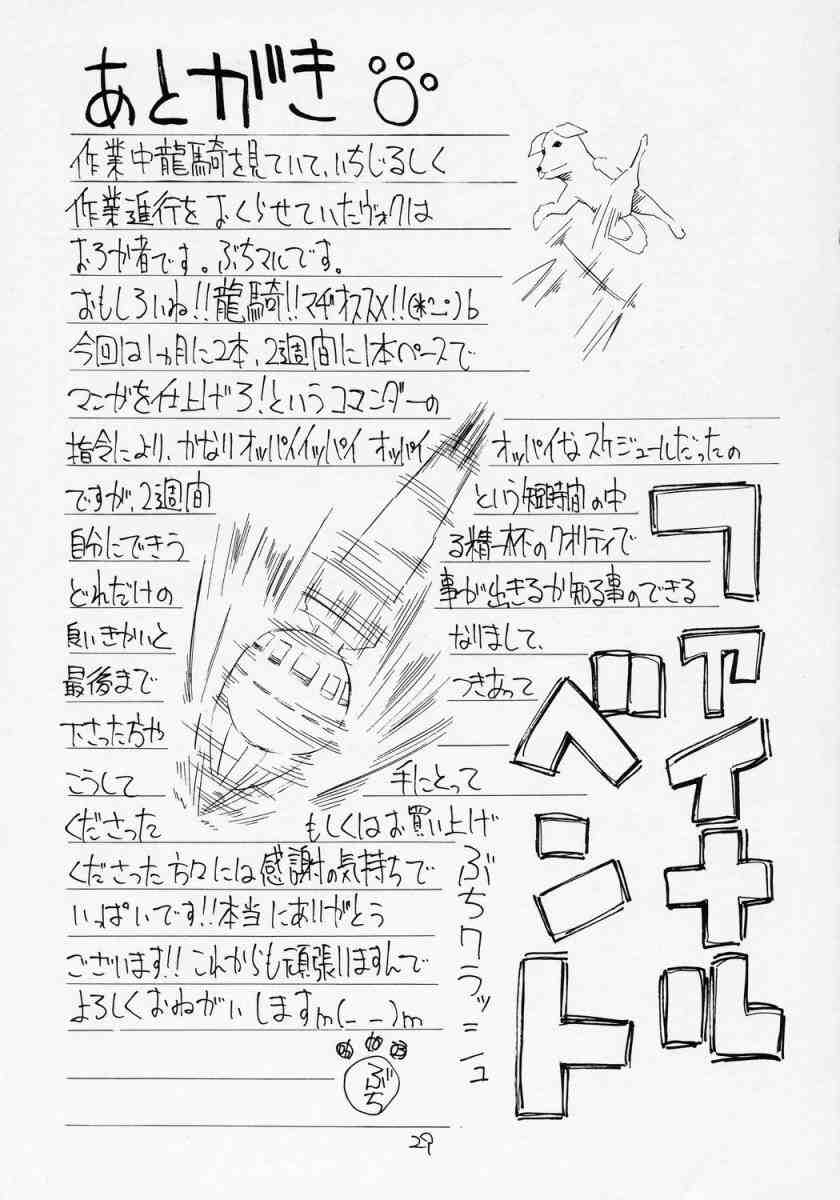 あとがき
作業中龍騎を見ていて、いちじるしく
作業進行をおくらせていたヴォクは
おろか者です。ぶちマルです。
おもしろいね!!龍騎!!マヂオススメ!!(*^-^)b
今回は1ヵ月に2本、2週間に1本ペースで
マンガを仕上げろ!というコマンダーの
指令により、かなりオッパイイッパイ オッパイ オッパイなスケジュールだったの
ですが、2週間という短時間の中
自分にできうる精一杯のクオリティで
どれだけの事が出きるか知る事のできる
良いきかいとなりまして、
最後までつきあって
下さった方や
こうして手にとって
くださった もしくはお買い上げ
くださった方々には感謝の気持ちで
いっぱいです!!本当にありがとう
ございます!!これからも頑張りますんで
よろしくおねがいしますm(_ _)m
ぶち
ファイナル
ベント
ぶちクラッシュ
29